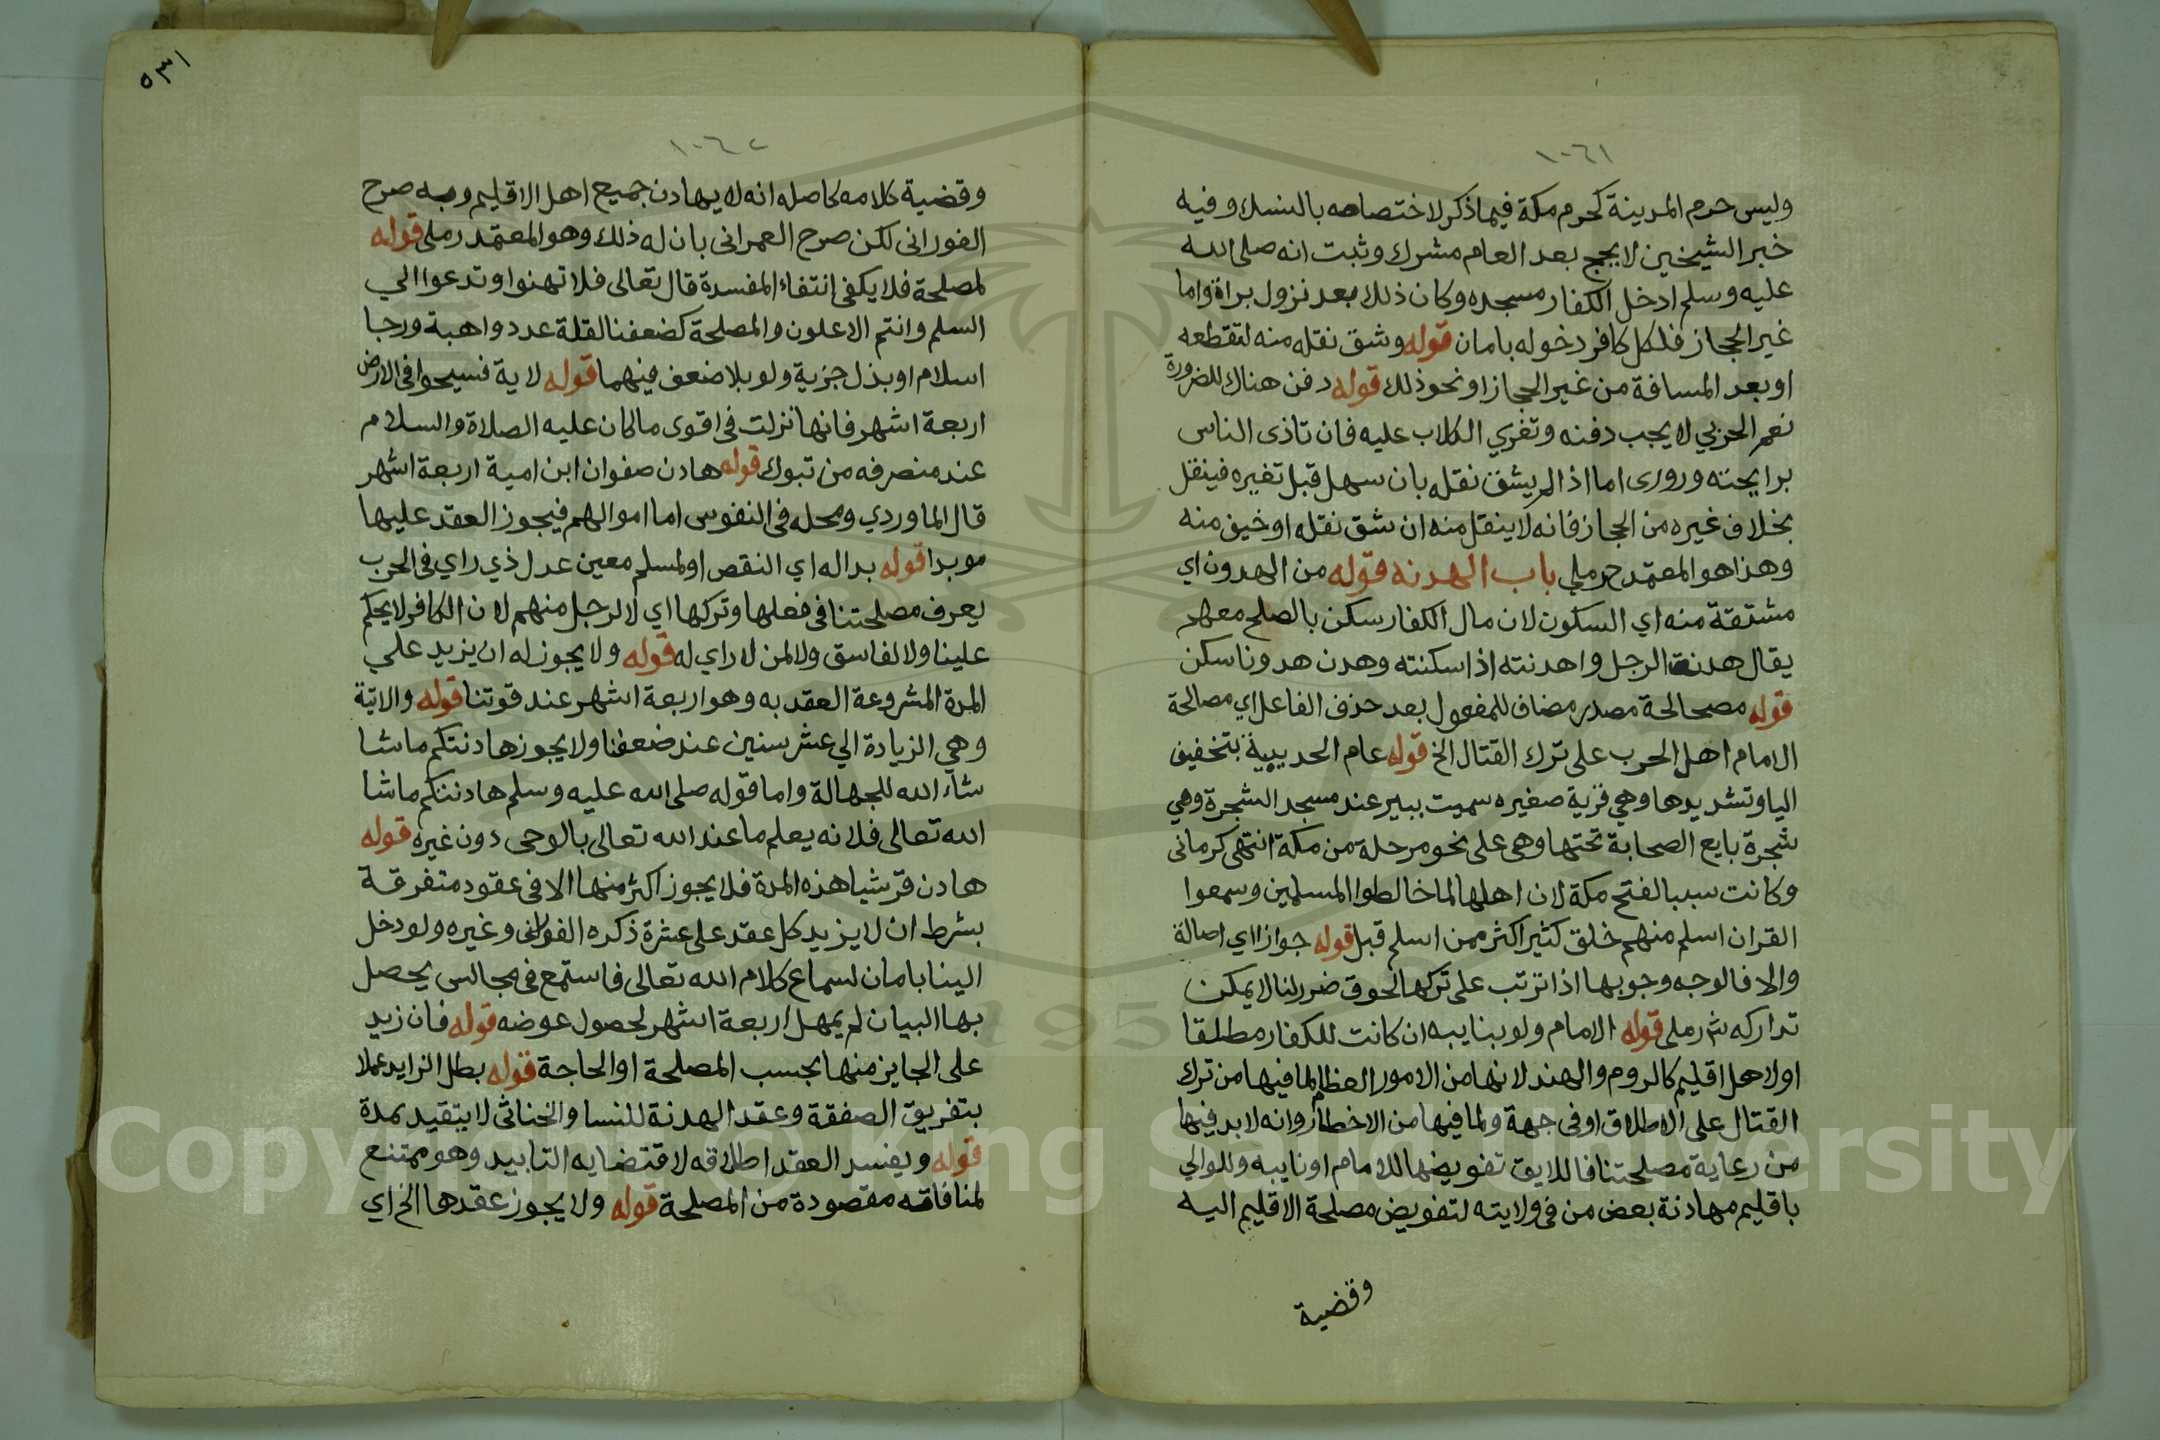 ١٠٦١
وليس حرم المدينة كحرم مكة فيما ذكر لاختصاصه بالنسك وفيه
خبر الشيخين لا يحج بعد العام مشرك وثبت انه صلى الله
عليه وسلم ادخل الكفار مسجده وكان ذلك بعد نزول براة واما
غير الحجاز فلكل كافر دخوله بامان قوله وشق نقله منه لتقطعه
او بعد المسافة من غير الحجاز او نحو ذلك قوله دفن هناك للضرورة
نعم الحربي لا يجب دفنه وتغري الكلاب عليه فان تاذى الناس
برايحته وورى اما اذا لم يشق نقله بان سهل قبل تغيره فينقل
بخلاف غيره من الحجاز فانه لا ينقل منه ان شق نقله او خيف منه
وهذا هو المعتمد رملي باب الهدنه قوله من الهدون اي
مشتقة منه اي السكون لان مال الكفار سكن بالصلح معهم
يقال هدنة الرجل واهدنته اذا سكنته وهدن هدونا سكن
قوله مصحالحة مصدر مضاف للمفعول بعد حذف الفاعل اي مصالحة
الامام اهل الحرب على ترك القتال الخ قوله عام الحديبية بتخفيف
اليا وتشديدها وهي قرية صغيره سميت ببير عند مسجد الشجرة وهي
شجرة بايع الصحابة تحتها وهي على نحو مرحلة من مكة انتهى كرمانى
وكانت سببا لفتح مكة لان اهلها لما خالطوا المسلمين وسمعوا
القران اسلم منهم خلق كثير اكثر ممن اسلم قبل قوله جوازا اي اصالة
والا فالوجه وجوبها اذا ترتب على تركها لحوق ضرر لنا لا يمكن
تداركه ش رملى قوله الامام ولو بنايبه ان كانت للكفار مطلقا
او لاهل اقليم كالروم والهند لانها من الامور العظام لما فيها من ترك
القتال على الاطلاق او في جهة ولما فيها من الاخطار وانه لا بد فيها
من رعاية مصلحتنا فاللايق تفويضها للامام او نايبه وللوالي
باقليم مهادنة بعض من في ولايته لتفويض مصلحة الاقليم اليه
وقضية
٥٣١
١٠٦٢
وقضية كلامه كاصله انه لا يهادن جميع اهل الاقليم وبه صرح
الفورانى لكن صرح العمرانى بان له ذلك وهو المعتمد رملى قوله
لمصلحة فلا يكفى انتفاء المفسدة قال تعالى فلا تهنوا وتدعوا الي
السلم وانتم الاعلون والمصلحة كضعفنا لقلة عدد واهبة ورجا
اسلام او بذل جزية ولو بلا ضعف فيهما قوله لاية فسيحوا في الارض
اربعة اشهر فانها نزلت في اقوى ما كان عليه الصلاة والسلام
عند منصرفه من تبوك قوله هادن صفوان ابن امية اربعة اشهر
قال الماوردي ومحله في النفوس اما اموالهم فيجوز العقد عليها
موبدا قوله بدا له اي النقص او لمسلم معين عدل ذي راي في الحرب
يعرف مصلحتنا في فعلها وتركها اي لا لرجل منهم لان الكافر لا يحكم
علينا ولا لفاسق ولا لمن لا راي له قوله ولا يجوز له ان يزيد علي
المدة المشروعة العقد به وهو اربعة اشهر عند قوتنا قوله والاتية
وهي الزيادة الي عشر سنين عند ضعفنا ولا يجوز هادنتكم ماشا
شاء الله للجهالة واما قوله صلى الله عليه وسلم هادنتكم ماشا
الله تعالى فلانه يعلم ما عند الله تعالى بالوحى دون غيره قوله
هادن قرشيا هذه المدة فلا يجوز اكثر منها الا في عقود متفرقة
بشرط ان لا يزيد كل عقد على عشرة ذكره الفورانى وغيره ولو دخل
الينا بامان لسماع كلام الله تعالى فاستمع في مجالس يحصل
بها البيان لم يمهل اربعة اشهر لحصول عوضه قوله فان زيد
على الجايز منها بحسب المصلحة او الحاجة قوله بطل الزايد عملا
بتفريق الصفقة وعقد الهدنة للنسا والخناثى لا يتقيد بمدة
قوله ويفسد العقد اطلاقه لاقتضايه التابيد وهو ممتنع
لمنافاته مقصودة من المصلحة قوله ولا يجوز عقدها الخ اي
Copyright © King Saud University
1957